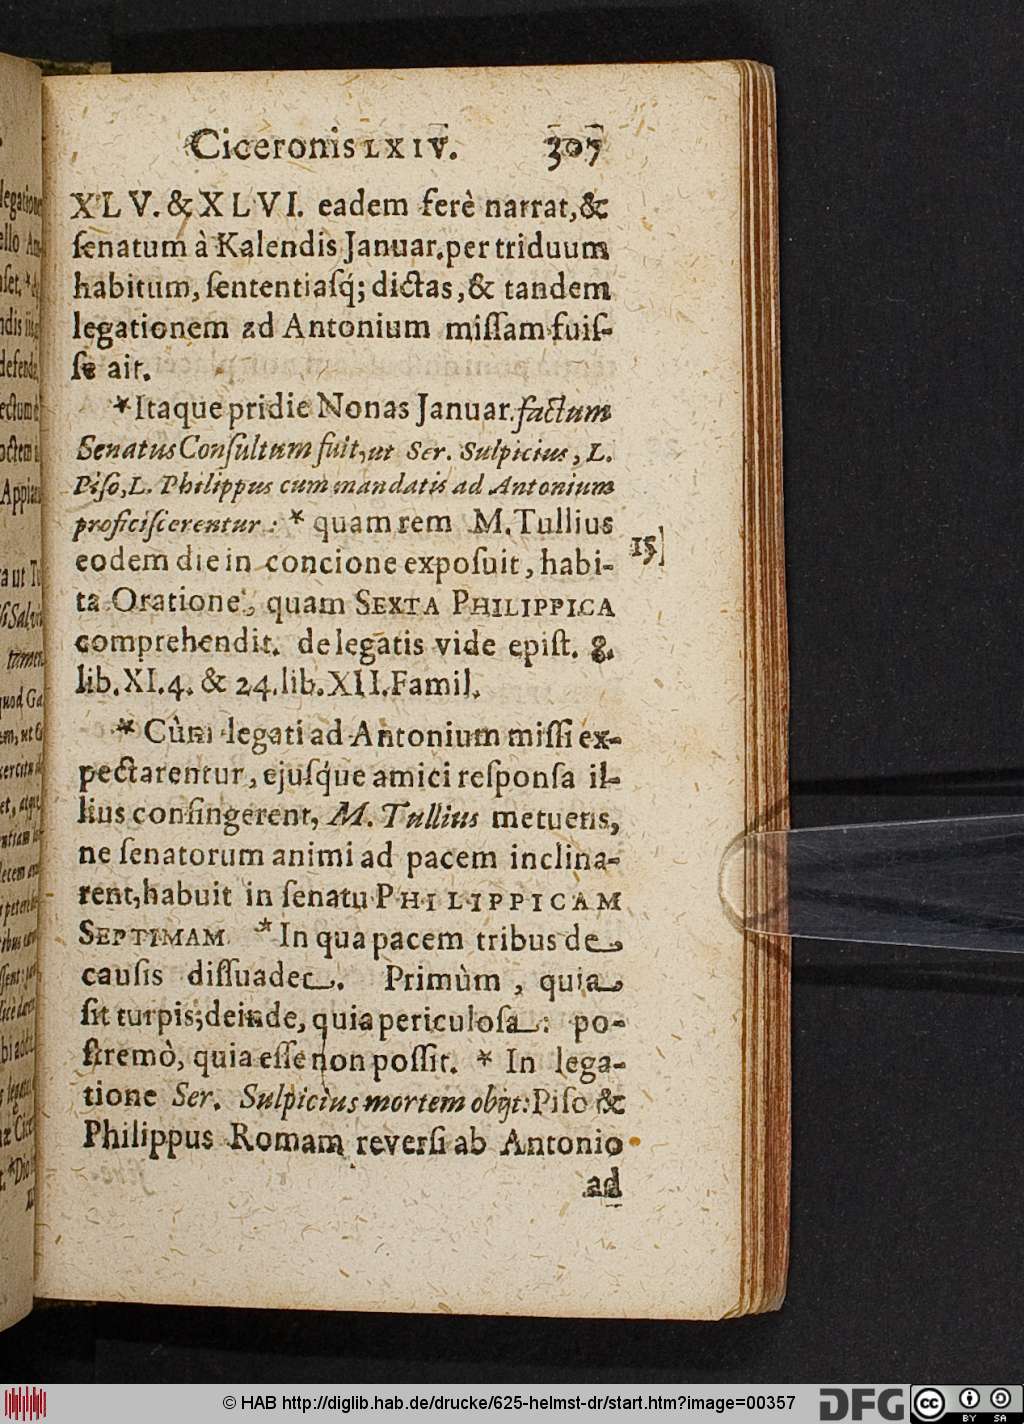 Ciceronis LXIV. 307
XLV. & XLVI. eadem ferè narrat, &
ſenatum à Kalendis Januar. per triduum
habitum, ſententiaſq́; dictas, & tandem
legationem ad Antonium miſſam fuiſ-
ſe ait.
*Itaque pridie Nonas Januar. factum
Senatus Conſultum fuit, ut Ser. Sulpicius, L.
Piſo, L. Philippus cum mandatis ad Antonium
proficiſcerentur: * quam rem M. Tullius
15]
eodem die in concione expoſuit, habi-
ta Oratione, quam SEXTA PHILIPPICA
comprehendit. de legatis vide epiſt. 8.
lib. XI. 4. & 24. lib. XII. Famil.
* Cùm legati ad Antonium miſſi ex-
pectarentur, ejuſq́ue amici reſponſa il-
lius confingerent, M. Tullius metuens,
ne ſenatorum animi ad pacem inclina-
rent, habuit in ſenatu PHILIPPICAM
SEPTIMAM *In qua pacem tribus de
cauſis diſſuadet. Primùm, quia
ſit turpis; deinde, quia periculoſa: po-
ſtremò, quia eſſe non poſſit. * In lega-
tione Ser. Sulpicius mortem obijt: Piſo &
Philippus Romam reverſi ab Antonio
ad
© HAB http://diglib.hab.de/drucke/625-helmst-dr/start.htm?image=00357
DFG
cc BY SA